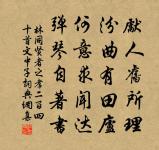 獻人舊所理
汾曲有田廬
何意求聞達
彈琴自著書
林同賢者之孝二百四
十首文中子詞典網集